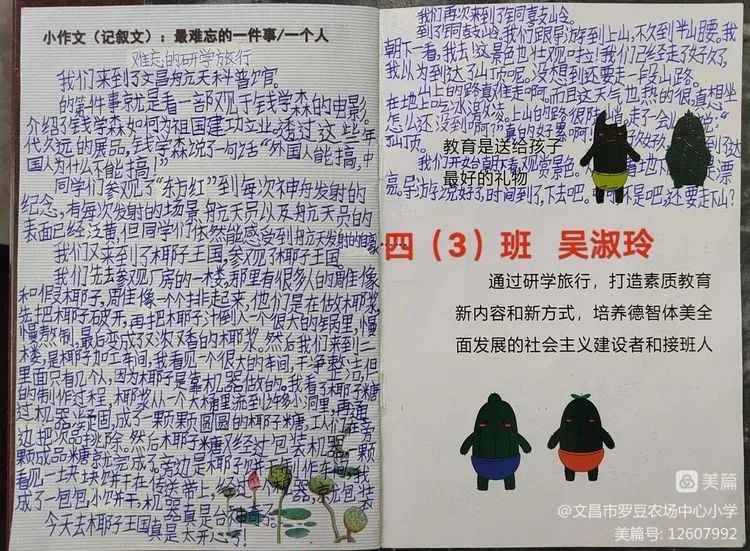 小作文（记叙文）：最难忘的一件事/一个人
难忘的研学旅行
我们来到了文昌航天科普馆。
的第件事就是看一部观于钱学森的电影。
介绍了钱学森如何为祖国建功立业，透过这些年
代久远的展品，钱学森说了一句话"外国人能搞，中
国人为什么不能搞！"
同学们参观了"东方红"到每次神舟发射的
纪念，有每次发射的场景，航天员以及航天员的
表面已经泛黄，但同学们依然能感受到航天发射的自豪
我们又来到了椰子王国，参观了椰子王国
我们先去参观厂房的一楼，那里有很多人的雕像
和假椰子，雕像一个个排起来，他们是在做椰浆，
先把椰子破开，再把椰子汁倒入一个很大的锅里，慢
慢熬制，最后变成又浓又香的椰浆。然后我们来到二
楼，是椰子加工车间，我看见一个很大的车间，干净整洁，但
里面只有几个人，因为椰子是靠机器做的。我看了椰子糖
的制作过程，椰浆从一个大桶里流到许多小洞里，再通
过机器凝固，成了一颗颗圆圆的椰子糖，工人们在旁
边把次品挑除。然后椰子糖又经过包装机器，一颗
颗成品糖就完成了。旁边是椰子饼 制作车间，我
看见一块块饼干在传送带上，经过 包装
成了一包包小饼干，机器真是太神奇了。
今天去椰子王国真是太开心了！
我们再次来到了铜鼓岭。
到了铜鼓岭，我们跟导游到上山，不久到半山腰。我
朝下一看，我去！这景色也壮观可拉！我们已经走了好久了，
我以为到达了山顶呢。没想到还要走一段山路。
山上的路真难走啊。而且这天气也热的很，真想坐
在地上吃冰淇淋。上山的路很陡峭，走了一会
怎么还没到啊？真的好累啊。
山顶。
我们开始朝下看观赏景色。
亮，导游等说好了，时间到了，下去吧。 不是吧，还要走下山？
教育是送给孩子
最好的礼物
四（3）班 吴淑玲
通过研学旅行，打造素质教育
新内容和新方式，培养德智体美全
面发展的社会主义建设者和接班人
美篇
@文昌市罗豆农场中心小学
美篇号: 12607992